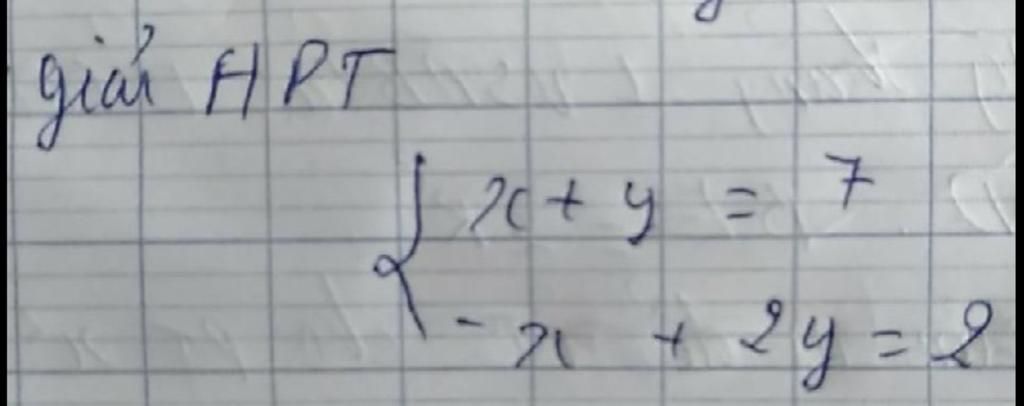 giải HPT
x + y = 7
- x + 2y = 2